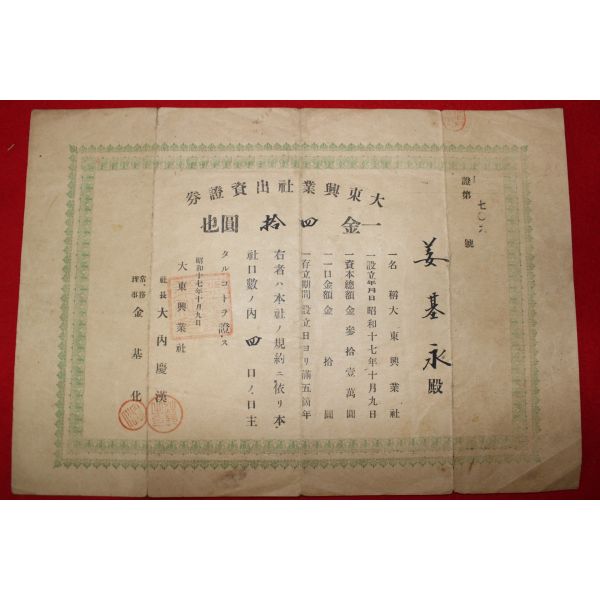 大東興業社出資證券
一金四拾圓也
證第七〇六號
姜基永殿
一名稱大東興業社
一設立年月日昭和十七年十月九日
一資本總額金參拾壹萬圓
一一口金額金拾圓
一存立期間設立日ヨリ滿五箇年
右者ハ本社ノ規約ニ依リ本
社口數ノ內四口ノ口主
タルコトヲ證ス
昭和十七年十月九日
大東興業社
社長大內慶漢
常務理事金基化